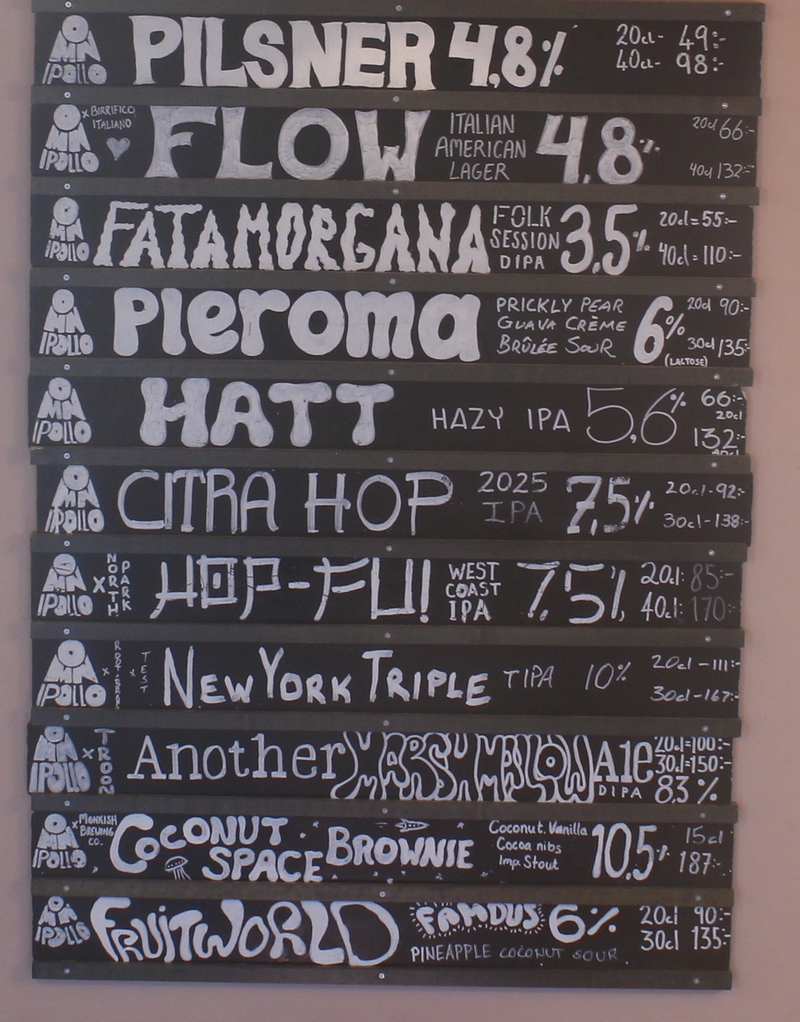 OMNIPOLLO PILSNER 4,8% 20cl- 49:-
40cl- 98:-
OMNIPOLLO x BIRRIFICO ITALIANO FLOW ITALIAN AMERICAN LAGER 4,8% 20cl 66:-
40cl 132:-
OMNIPOLLO FATAMORGANA FOLK SESSION DIPA 3,5% 20cl=55:-
40cl=110:-
OMNIPOLLO Pleroma PRICKLY PEAR GUAVA CRÈME BRÛLÉE SOUR 6% (LACTOSE) 20cl 90:-
30cl 135:-
OMNIPOLLO HATT HAZY IPA 5,6% 66:-
20cl
132:-
OMNIPOLLO CITRA HOP 2025 IPA 7,5% 20cl-92:-
30cl-138:-
OMNIPOLLO x NORTH PARK HOP-FU! WEST COAST IPA 7,5% 20cl: 85:-
40cl: 170:-
OMNIPOLLO x x TEST NEW YORK TRIPLE TIPA 10% 20cl -111:-
30cl-167:-
OMNIPOLLO x TROON Another MARSHMALLOW Ale DIPA 20cl=100:-
30cl=150:-
8,3%
OMNIPOLLO x MONKISH BREWING CO. COCONUT SPACE BROWNIE Coconut. Vanilla Cocoa nibs Imp. Stout 10,5% 15cl
187:-
OMNIPOLLO FRUITWORLD FAMOUS 6% 20cl 90:-
PINEAPPLE COCONUT SOUR 30cl 135:-